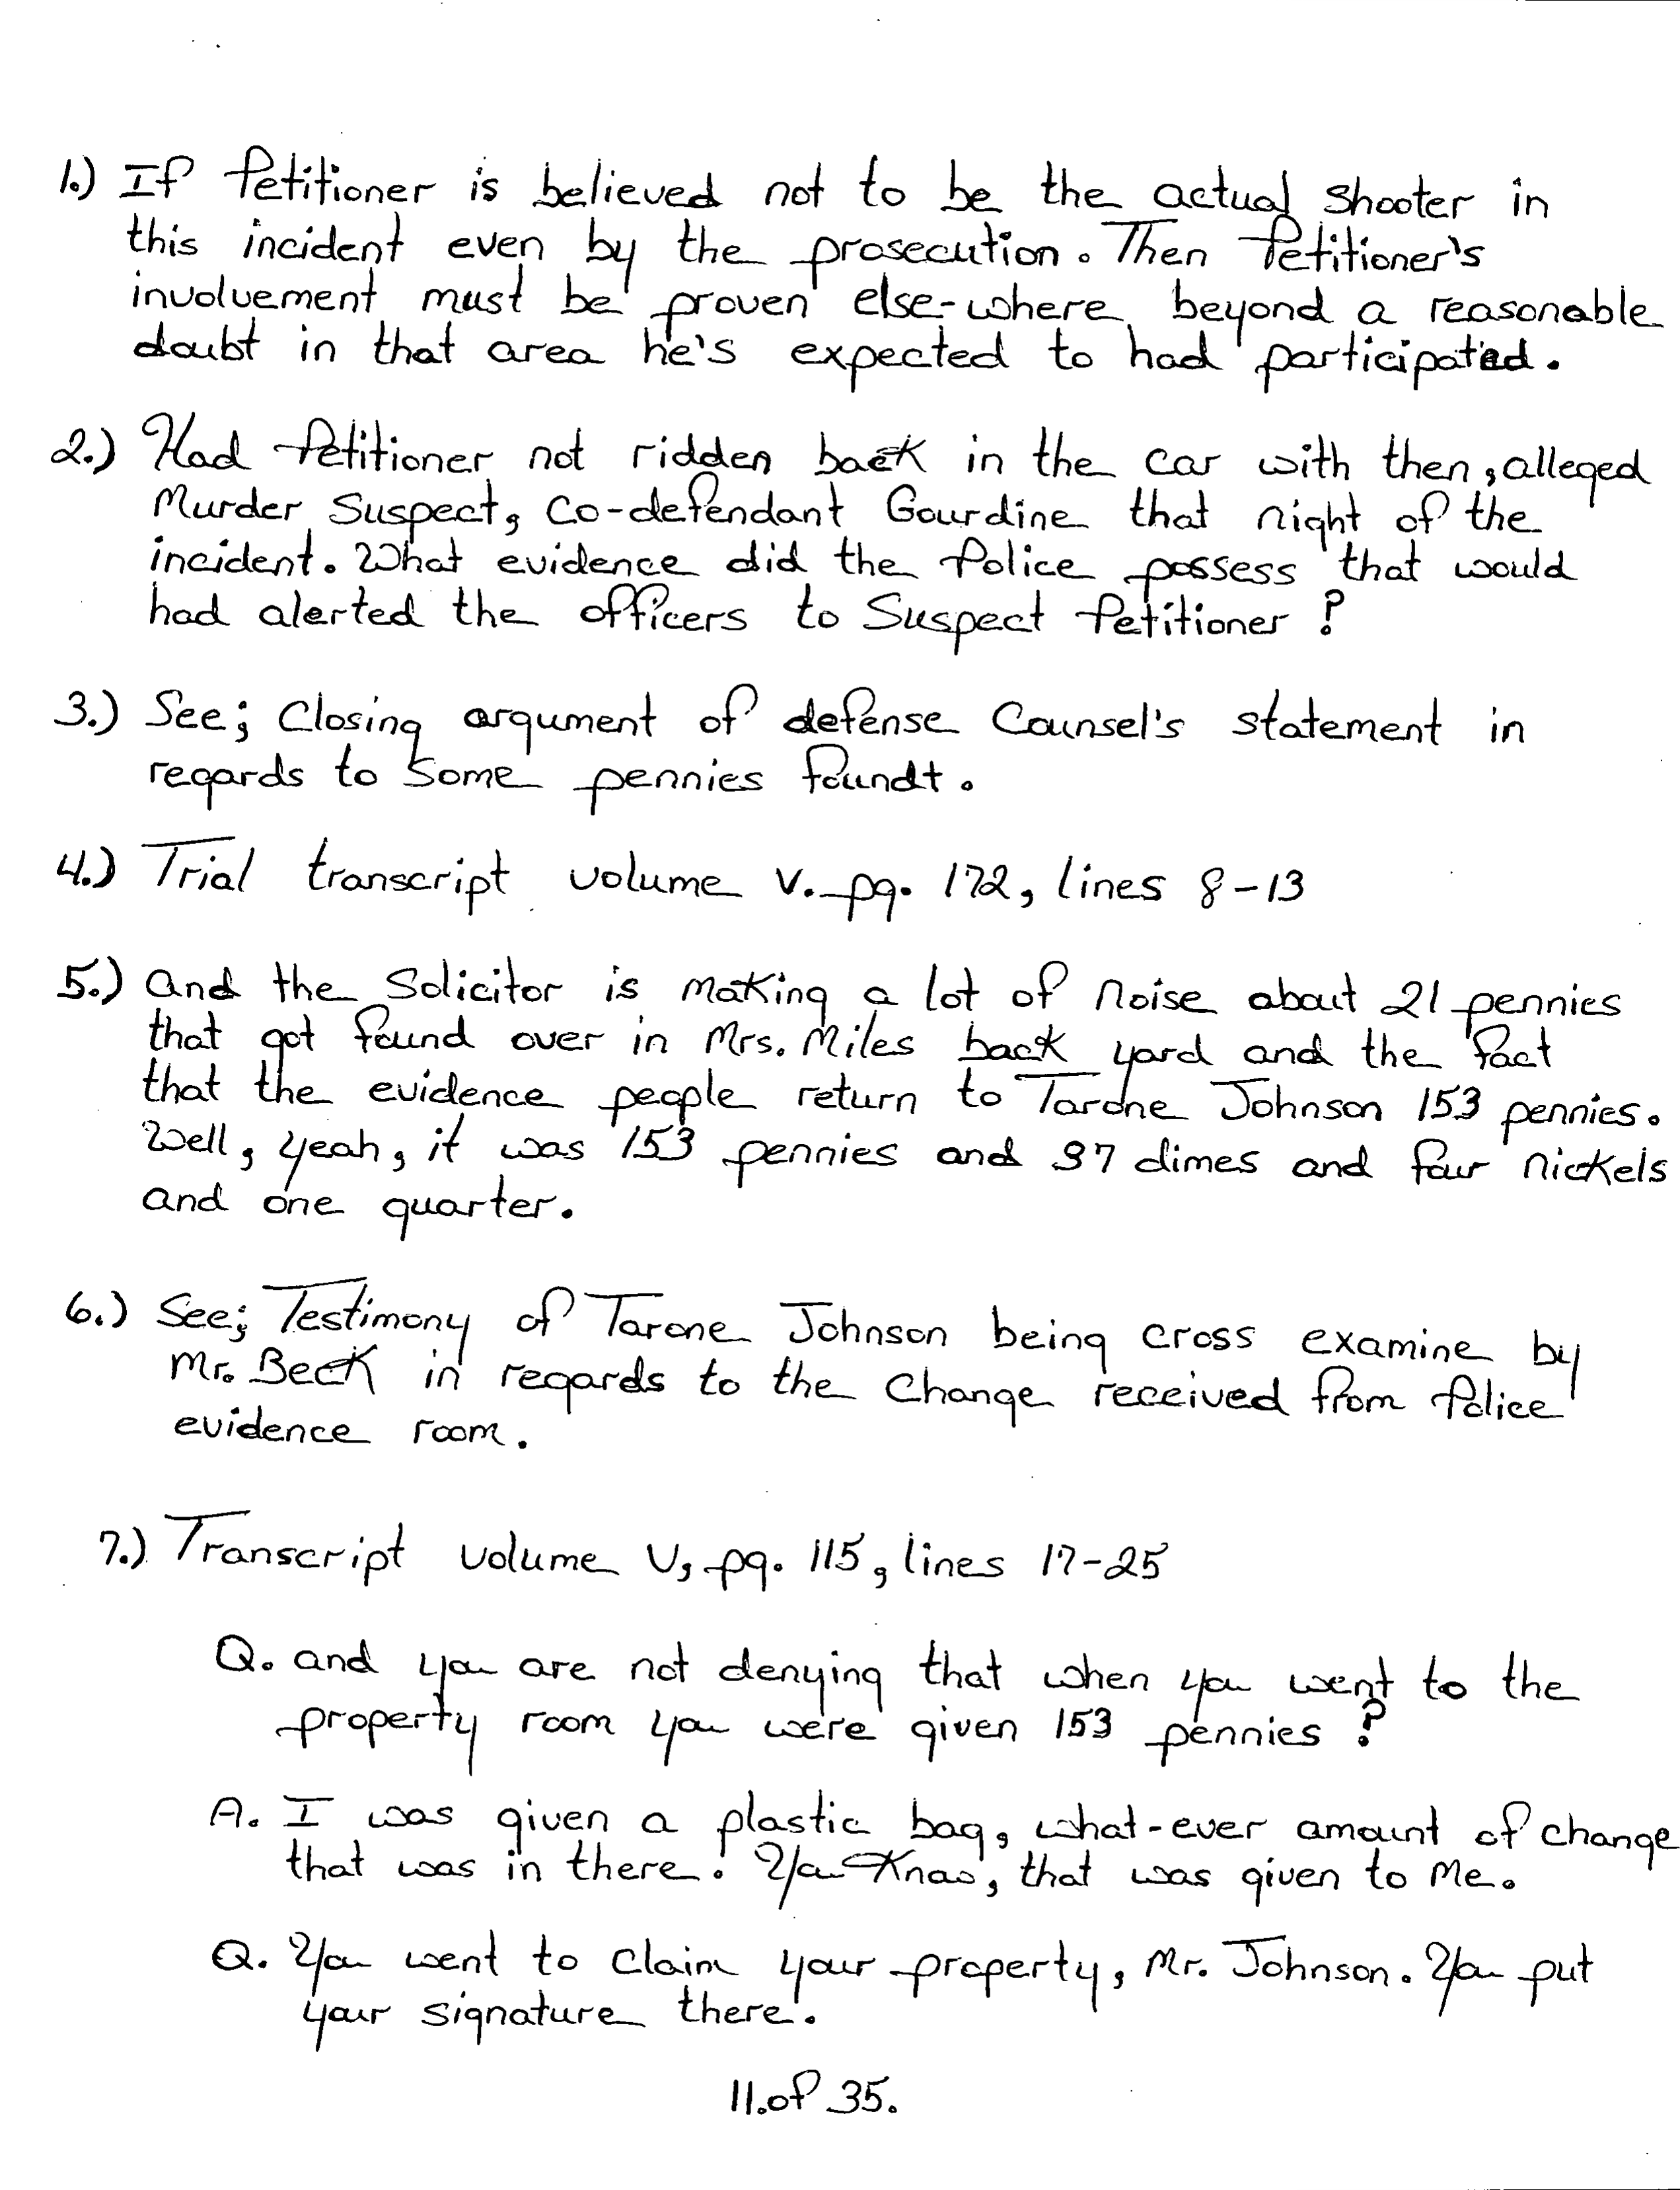 1.) If Petitioner is believed not to be the actual shooter in
this incident even by the prosecution. Then Petitioner's
involvement must be proven else-where beyond a reasonable
doubt in that area he's expected to had participated.
2.) Had Petitioner not ridden back in the car with then, alleged
Murder Suspect, Co-defendant Gourdine that night of the
incident. What evidence did the Police possess that would
had alerted the officers to Suspect Petitioner?
3.) See; Closing argument of defense Counsel's statement in
regards to some pennies foundt.
4.) Trial transcript volume V. pg. 172, lines 8-13
5.) And the Solicitor is making a lot of noise about 21 pennies
that got found over in Mrs. Miles back yard and the fact
that the evidence people return to Tarone Johnson 153 pennies.
Well, yeah, it was 153 pennies and 37 dimes and four nickels
and one quarter.
6.) See; Testimony of Tarone Johnson being cross examine by
Mr. Beck in regards to the change received from Police
evidence room.
7.) Transcript volume V, pg. 115, lines 17-25
Q. and you are not denying that when you went to the
property room you were given 153 pennies?
A. I was given a plastic bag, what-ever amount of change
that was in there. You know, that was given to me.
Q. You went to claim your property, Mr. Johnson. You put
your signature there.
11. of 35.